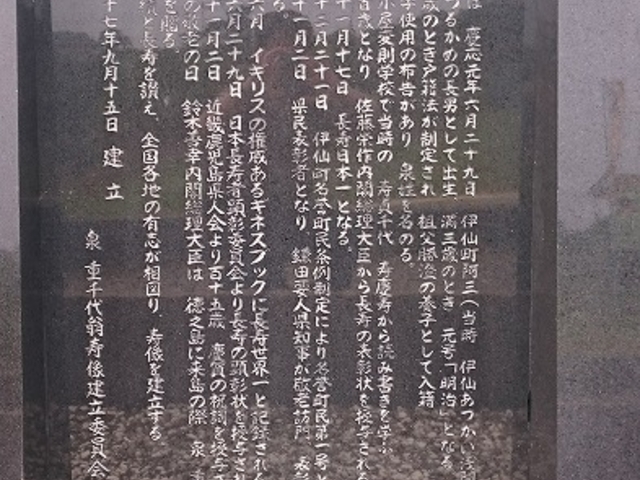 は 慶応元年六月二十九日 伊仙町阿三(当時 伊仙あつかい浅間
つるかめの長男として出生、満三歳のとき 元号「明治」となる。
歳のとき戸籍法が制定され 祖父勝澄の養子として入籍
字使用の布告があり 泉姓を名のる。
小屋変則学校で当時の 寿貞千代 寿慶寿から読み書きを学ぶ
百歳となり 佐藤栄作内閣総理大臣から長寿の表彰状を授与される
十一月十七日 長寿日本一となる。
十二月二十一日 伊仙町名誉町民条例制定により名誉町民第一号と
十一月二日 県民表彰者となり、鎌田要人県知事が敬老訪問 表彰
る。
六月 イギリスの権威あるギネスブックに長寿世界一と記録される
六月二十九日 日本長寿者顕彰委員会より長寿の顕彰状を授与され
十一月二日 近畿鹿児島県人会より百十五歳 慶賀の祝詞を授与さ
の敬老の日 鈴木善幸内閣総理大臣は 徳之島に来島の際 泉 重
を贈る。
績と長寿を讃え、全国各地の有志が相図り、寿像を建立する
十七年九月十五日 建立
泉 重千代翁寿像建立委員会